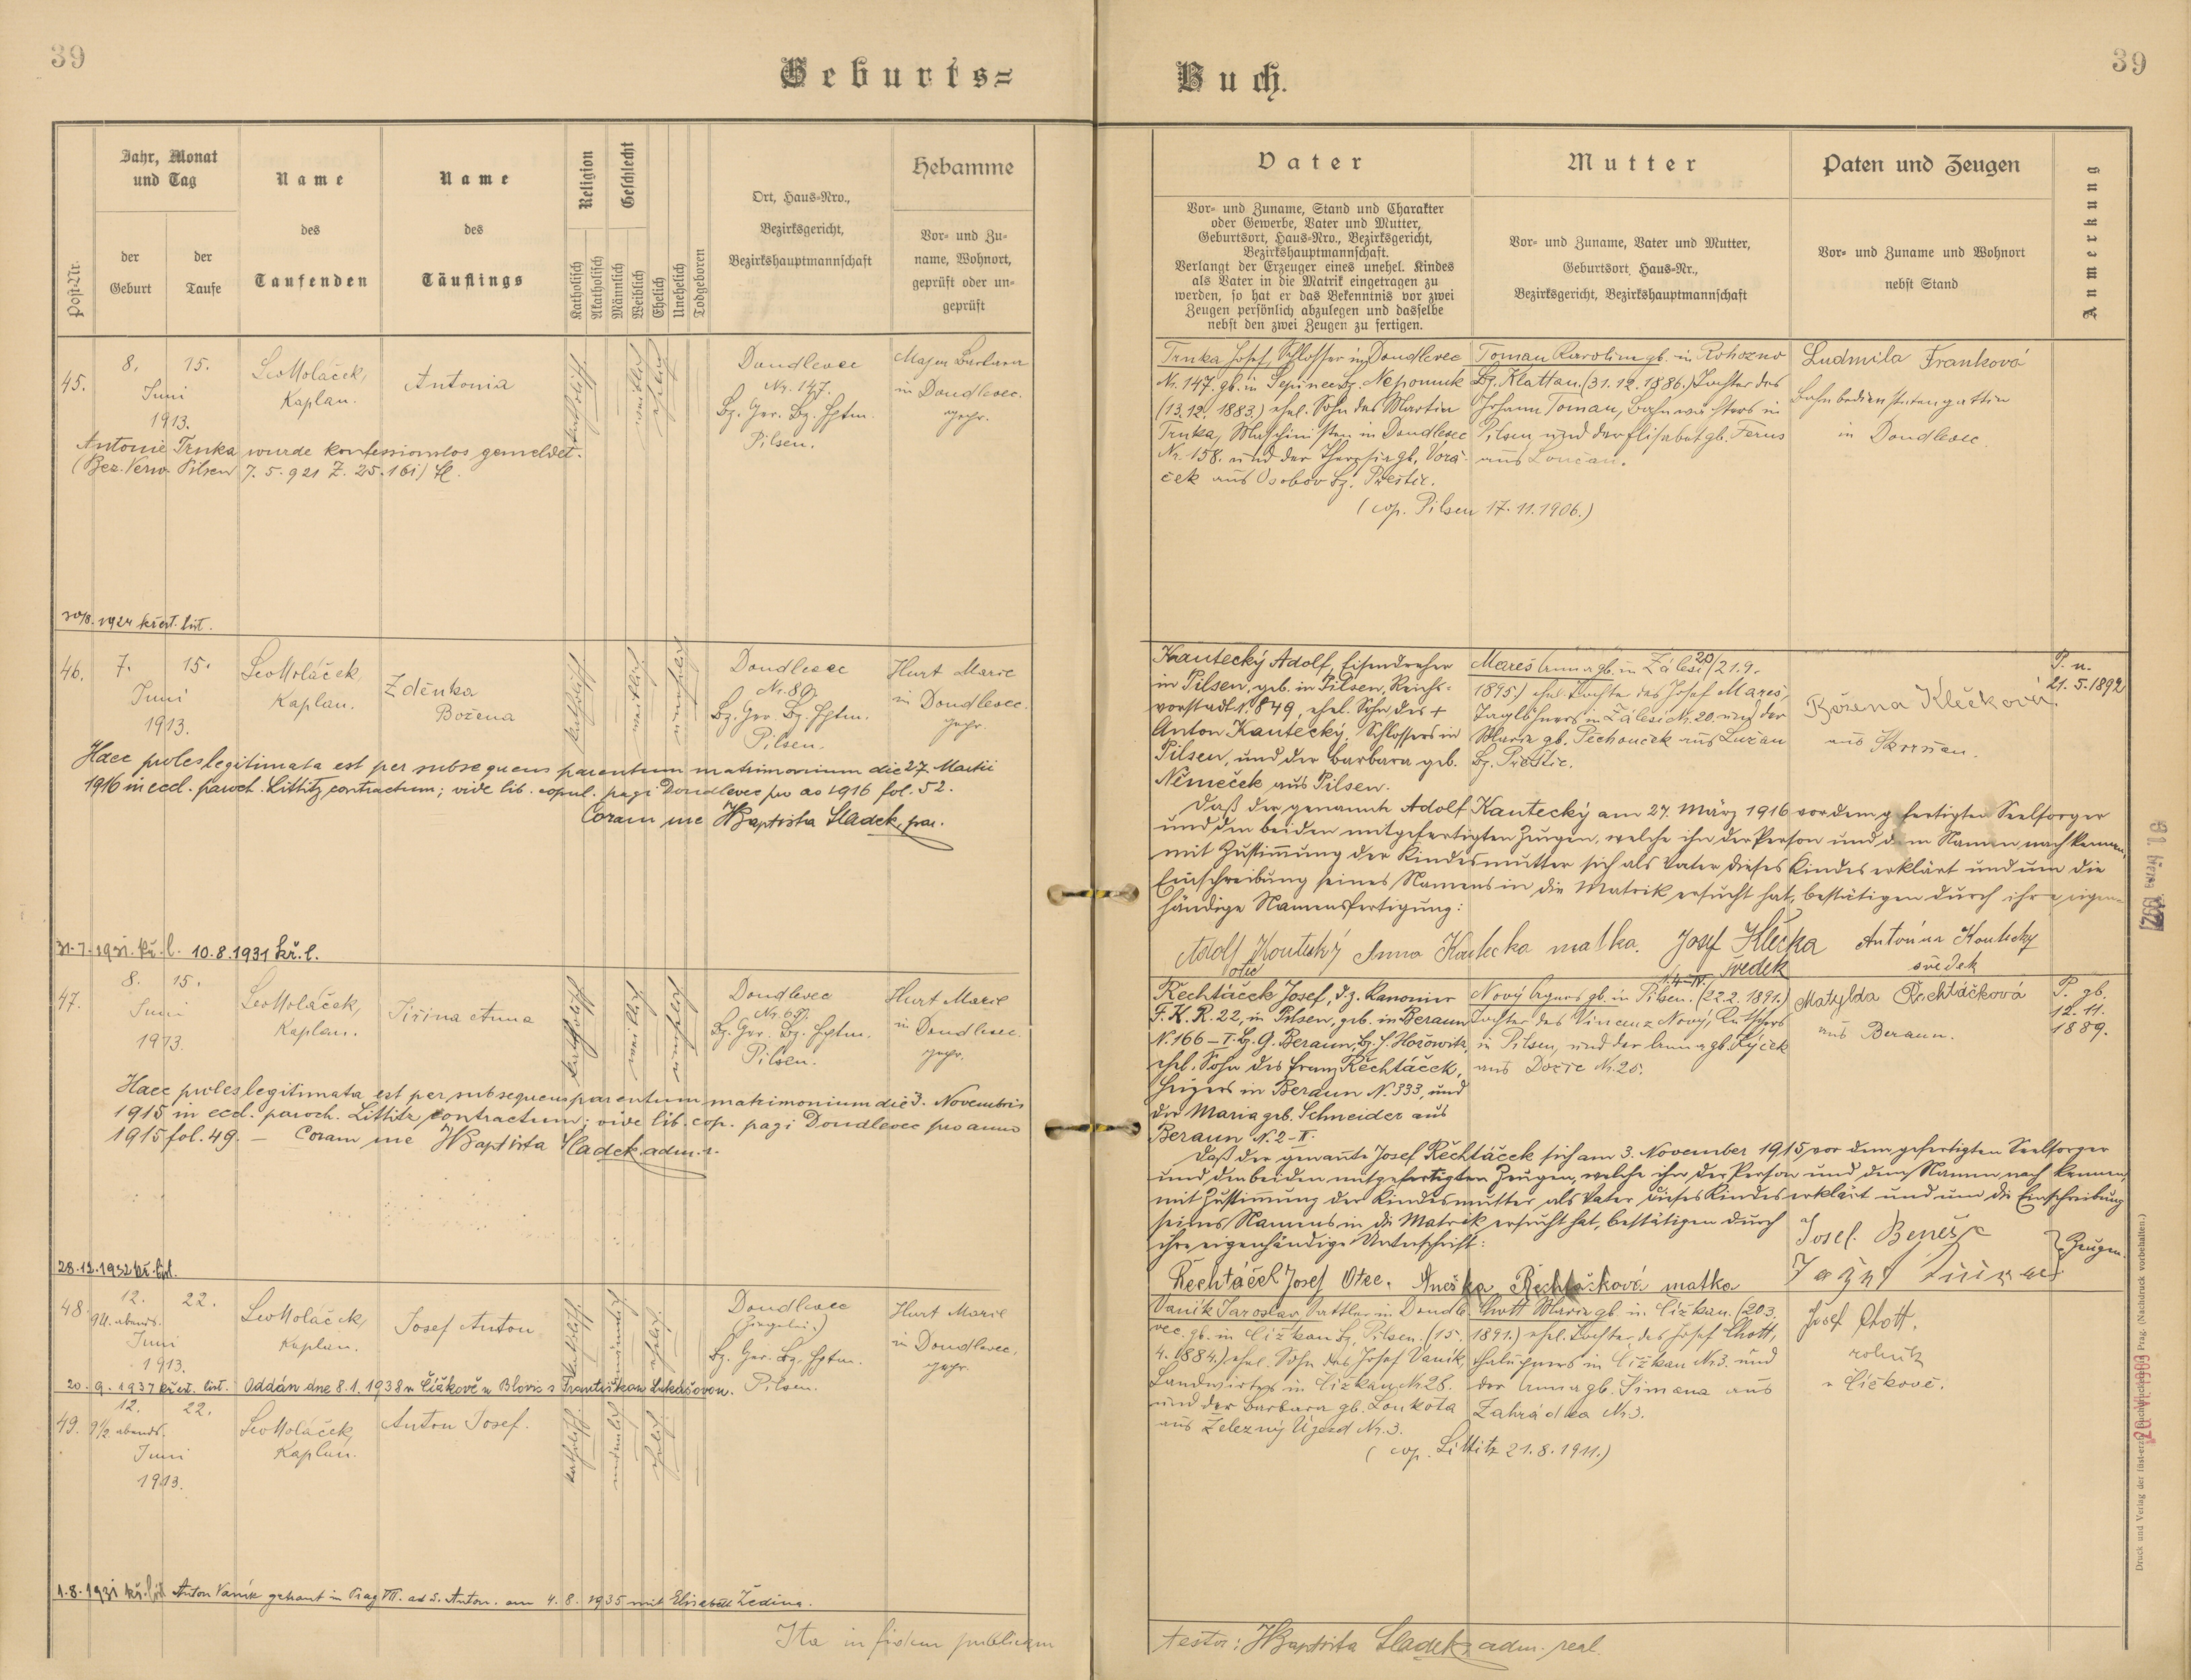 39
Geburts=
Jahr, Monat und Tag
der Geburt
der Taufe
Post-Nr.
Name des Taufenden
Name des Täuflings
Religion
Katholisch
Akatholisch
Geschlecht
Männlich
Weiblich
Ehelich
Unehelich
Todgeboren
Ort, Haus=Nro.,
Bezirksgericht,
Bezirkshauptmannschaft
Hebamme
Vor= und Zu=
name, Wohnort,
geprüft oder un=
geprüft
45.
8. 15.
Juni
1913.
Leo Holáček,
Kaplan.
Antonia
katholisch
weiblich
ehelich
Doudlevec
Nr. 147.
Bz. Ger. Bz. Hptm.
Pilsen.
Majer Barbara
in Doudlevec.
gepr.
Antonie Trnka wurde konfessionslos gemeldet.
(Bez. Verw. Pilsen 7.5.921 Z. 25.161) Sl.
1924 křest. list.
46.
7. 15.
Juni
1913.
Leo Holáček
Kaplan.
Zdenka
Božena
katholisch
weiblich
unehelich
Doudlevec
Nr. 89.
Bz. Ger. Bz. Hptm.
Pilsen.
Hurt Marie
in Doudlevec.
gepr.
Haec proles legitimata est per subsequens parentum matrimonium die 27. Martii
1916 in eccl. paroch. Littitz contractum; vide lib. copul. pagi Doudlevec pro ao 1916 fol. 52.
Coram me JBaptista Sladek, par.
31.7.1931. kř. l. 10.8.1931 kř. l.
47.
8. 15.
Juni
1913.
Leo Holáček,
Kaplan.
Jiřina Anna
katholisch
weiblich
unehelich
Doudlevec
Nr. 69.
Bz. Ger. Bz. Hptm.
Pilsen.
Hurt Marie
in Doudlevec.
gepr.
Haec proles legitimata est per subsequens parentum matrimonium die 3. Novembris
1915 in eccl. paroch. Littitz contractum; vide lib. cop. pagi Doudlevec pro anno
1915 fol. 49. – Coram me JBaptista Sladek adm.
28.12.1932 kř. list.
48.
12. 22.
9 U. abends.
Juni
1913.
Leo Holáček,
Kaplan.
Josef Anton
katholisch
männlich
ehelich
Doudlevec
Bz. Ger. Bz. Hptm.
Pilsen.
Hurt Marie
in Doudlevec,
gepr.
20.9.1937 křest. list. Oddán dne 8.1.1938 v Čížkově u Blovic s Františkou Lukášovou.
49.
12. 22.
9 1/2 abends.
Juni
1913.
Leo Holáček,
Kaplan.
Anton Josef.
katholisch
männlich
ehelich
1.8.1931 kř. list Anton Vaník getraut in Prag VII. ad S. Anton. am 4.8.1935 mit Elisabeth Ledina.
Ita in fidem publicam
39
Buch.
Vater
Vor= und Zuname, Stand und Charakter
oder Gewerbe, Vater und Mutter,
Geburtsort, Haus=Nro., Bezirksgericht,
Bezirkshauptmannschaft.
Verlangt der Erzeuger eines unehel. Kindes
als Vater in die Matrik eingetragen zu
werden, so hat er das Bekenntnis vor zwei
Zeugen persönlich abzulegen und dasselbe
nebst den zwei Zeugen zu fertigen.
Mutter
Vor= und Zuname, Vater und Mutter,
Geburtsort, Haus=Nr.,
Bezirksgericht, Bezirkshauptmannschaft
Paten und Zeugen
Vor= und Zuname und Wohnort
nebst Stand
Anmerkung
Trnka Josef, Schlosser in Doudlevec
Nr. 147. gb. in Bz. Nepomuk
(13.12.1883.) ehel. Sohn des Martin
Trnka, Maschinisten in Doudlevec
Nr. 158. und der Theresia gb. Vorá=
ček aus Osobov Bz. Přeštic.
Toman Karolina gb. in Rohozno
Bz. Klattau. (31.12.1886.) Tochter des
Johann Toman, Bahnwächters in
Pilsen und der Elisabet gb.
aus Loučan.
(cop. Pilsen 17.11.1906.)
Ludmila Franková
Bahnbedienstetengattin
in Doudlevec.
Kautecký Adolf, Eisendreher
in Pilsen, geb. in Pilsen, Reichs=
vorstadt N. 849, ehel. Sohn des +
Anton Kautecký, Schlossers in
Pilsen, und der Barbara geb.
Němeček aus Pilsen.
Mareš Anna gb. in Zálesí 20 (21.9.
1895.) ehel. Tochter des Josef Mareš,
Taglöhners in Zálesí Nr. 20. und der
Maria gb. Pěchouček aus Lužan
Bz. Přeštic.
Božena Klečková
aus Skvrňan.
P. n.
21.5.1892
Daß der genannte Adolf Kautecký am 27. März 1916 vor dem gefertigten Seelsorger
und den beiden mitgefertigten Zeugen, welche ihn der Person und dem Namen nach kennen,
mit Zustimmung der Kindesmutter sich als Vater dieses Kindes erklärt und um die
Einschreibung seines Namens in die Matrik ersucht hat, bestätigen durch ihre eigen=
händige Namensfertigung:
Adolf Koutecký Anna Koutecka matka. Josef Klečka Antonín Koutecky
otec svědek svědek
Řechtáček Josef, d.z. Kanonier
F.K.R. 22, in Pilsen, geb. in Beraun
N. 166–I. Bz. G. Beraun, Bz. H. Hořowitz,
ehel. Sohn des Franz Řechtáček,
Heizers in Beraun N. 333, und
der Maria geb. Schneider aus
Beraun N. 2–II.
Nový Agnes gb. in Pilsen. (22.2.1891.)
Tochter des Vincenz Nový, Kutschers
in Pilsen, und der Anna gb. Rýček
aus Nr. 25.
Matylda Řechtáčková
aus Beraun.
P. gb.
12.11.
1889.
Daß der genannte Josef Řechtáček sich am 3. November 1915, vor dem gefertigten Seelsorger
und den beiden mitgefertigten Zeugen, welche ihn der Person und dem Namen nach kennen,
mit Zustimmung der Kindesmutter als Vater dieses Kindes erklärt und um die Einschreibung
seines Namens in die Matrik ersucht hat, bestätigen durch
ihre eigenhändige Unterschrift:
Josef Beneš
Zeugen.
Řechtáček Josef Otec. Anežka Řechtáčková matka
Vaník Jaroslav, Sattler in Doudle=
vec. gb. in Čížkau Bz. Pilsen. (15.
4. 1884.) ehel. Sohn des Josef Vaník,
Landwirtes in Čížkau Nr. 28.
und der Barbara gb. Loukota
aus Železný Újezd Nr. 3.
Chott Marie gb. in Čížkau. (20.3.
1891.) ehel. Tochter des Josef Chott,
Chaluppners in Čížkau Nr. 3. und
der Anna gb. Simana aus
Zahrádka Nr. 3.
(cop. Littitz 21.8.1911.)
Josef Chott.
rolník
v Čížkově.
testor: JBaptista Sladek, adm. real.